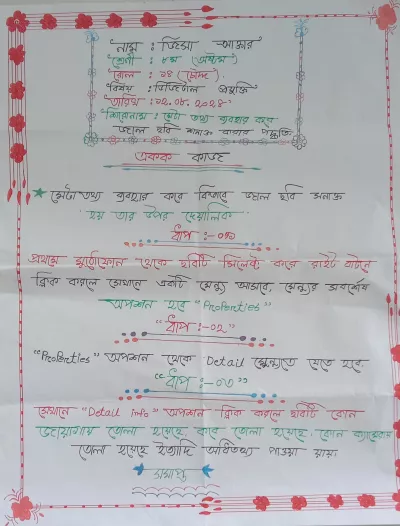 নাম : জিসা আক্তার
শ্রেণী : ৮ম (অষ্টম)
রোল : ১৪ (চৌদ্দ).
বিষয় : ডিজিটাল প্রযুক্তি
তারিখ : ২২.০৮.২০২৪
শিরোনাম : মেটা তথ্য ব্যবহার করে
জাল ছবি শনাক্ত করার পদ্ধতি
একক কাজ
মেটা তথ্য ব্যবহার করে কিভাবে জাল ছবি সনাক্ত
হয় তার উপর দেয়ালিকা
ধাপ :-০১
প্রথমে মুঠোফোন থেকে ছবিটি সিলেক্ট করে রাইট বাটনে
ক্লিক করলে সেখানে একটি মেনু আসবে, মেনুর সবশেষ
অপশন হবে "Properties"
"ধাপ :-০২"
"Properties" অপশন থেকে Detail মেনুতে যেতে হবে.
"ধাপ :-০৩"
সেখানে "Detail info" অপশন ক্লিক করলে ছবিটি কোন
জায়গায় তোলা হয়েছে কবে তোলা হয়েছে. কোন ক্যামেরায়
তোলা হয়েছে ইত্যাদি অধিতথ্য পাওয়া যায়.
সমাপ্ত